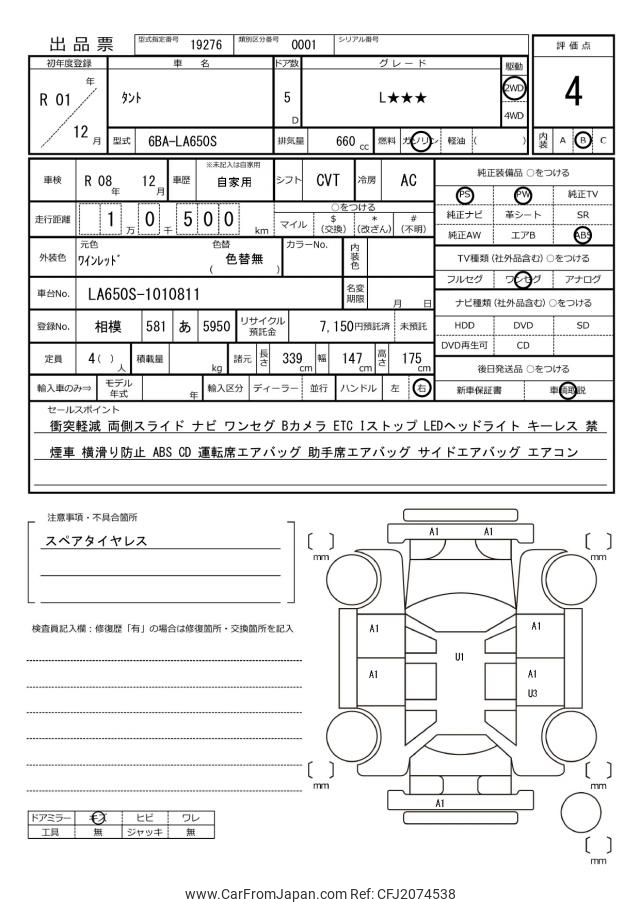 出品票 型式指定番号 19276 類別区分番号 0001 シリアル番号
評価点
4
内装 A B C
初年度登録 車名 ドア数 グレード 駆動
R 01 年 12 月 タント 5 D L★★★ 2WD 4WD
型式 6BA-LA650S 排気量 660 cc 燃料 ガソリン 軽油 ( )
車検 R 08 年 12 月 車歴 ※未記入は自家用 自家用 シフト CVT 冷房 AC
走行距離 1 万 0 千 5 0 0 km
○をつける
マイル $(交換) *(改ざん) #(不明)
外装色 元色 ワインレッド 色替 ( 色替無 ) カラーNo. 内装色
車台No. LA650S-1010811 名変期限 月 日
登録No. 相模 581 あ 5950 リサイクル預託金 7,150円預託済 未預託
定員 4( )人 積載量 kg 諸元 長さ 339 cm 幅 147 cm 高さ 175 cm
輸入車のみ⇒ モデル年式 年 輸入区分 ディーラー 並行 ハンドル 左 右
純正装備品 ○をつける
PS PW 純正TV
純正ナビ 革シート SR
純正AW エアB ABS
TV種類(社外品含む)○をつける
フルセグ ワンセグ アナログ
ナビ種類(社外品含む)○をつける
HDD DVD SD
DVD再生可 CD
後日発送品 ○をつける
新車保証書 車輌取説
セールスポイント
衝突軽減 両側スライド ナビ ワンセグ Bカメラ ETC Iストップ LEDヘッドライト キーレス 禁
煙車 横滑り防止 ABS CD 運転席エアバッグ 助手席エアバッグ サイドエアバッグ エアコン
注意事項・不具合箇所
スペアタイヤレス
検査員記入欄：修復歴「有」の場合は修復箇所・交換箇所を記入
A1 A1
mm mm
A1 A1
U1
A1 A1
U3
mm mm
A1
mm
ドアミラー キズ ヒビ ワレ
工具 無 ジャッキ 無
www.CarFromJapan.com Ref: CFJ2074538